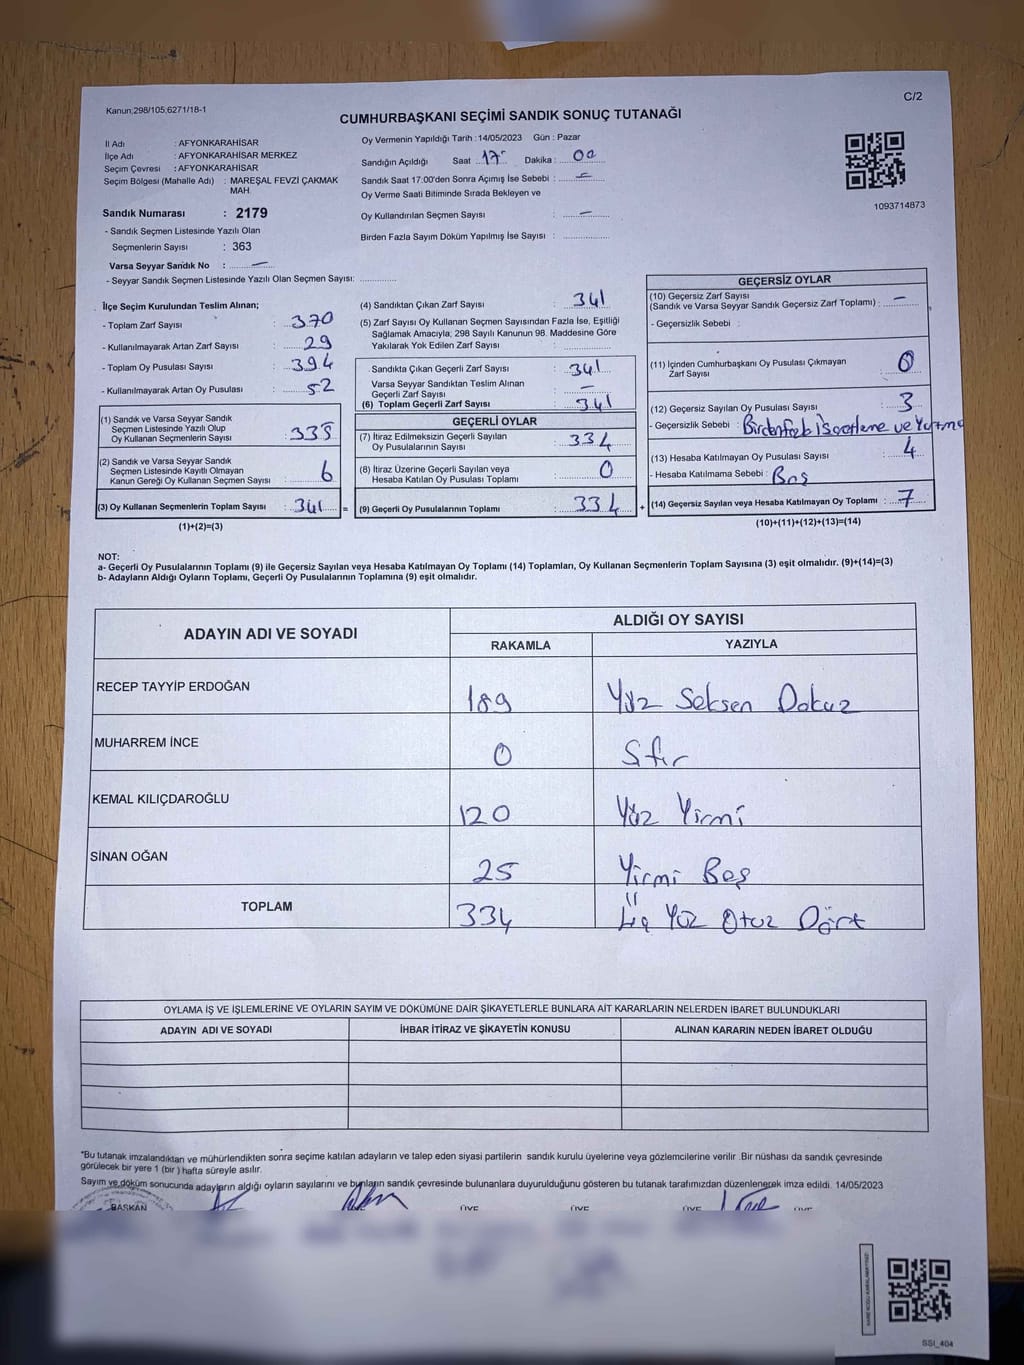 Kanun:298/105;6271/18-1
C/2
CUMHURBAŞKANI SEÇİMİ SANDIK SONUÇ TUTANAĞI
İl Adı : AFYONKARAHİSAR
İlçe Adı : AFYONKARAHİSAR MERKEZ
Seçim Çevresi : AFYONKARAHİSAR
Seçim Bölgesi (Mahalle Adı) : MAREŞAL FEVZİ ÇAKMAK
MAH.
Sandık Numarası : 2179
- Sandık Seçmen Listesinde Yazılı Olan
Seçmenlerin Sayısı : 363
Varsa Seyyar Sandık No : —
- Seyyar Sandık Seçmen Listesinde Yazılı Olan Seçmen Sayısı:
Oy Vermenin Yapıldığı Tarih : 14/05/2023 Gün : Pazar
Sandığın Açıldığı Saat 17 Dakika : 00
Sandık Saat 17:00'den Sonra Açımış İse Sebebi : —
Oy Verme Saati Bitiminde Sırada Bekleyen ve
Oy Kullandırılan Seçmen Sayısı : —
Birden Fazla Sayım Döküm Yapılmış İse Sayısı :
1093714873
İlçe Seçim Kurulundan Teslim Alınan;
- Toplam Zarf Sayısı : 370
- Kullanılmayarak Artan Zarf Sayısı : 29
- Toplam Oy Pusulası Sayısı : 394
- Kullanılmayarak Artan Oy Pusulası : 52
(1) Sandık ve Varsa Seyyar Sandık
Seçmen Listesinde Yazılı Olup
Oy Kullanan Seçmenlerin Sayısı : 335
(2) Sandık ve Varsa Seyyar Sandık
Seçmen Listesinde Kayıtlı Olmayan
Kanun Gereği Oy Kullanan Seçmen Sayısı : 6
(3) Oy Kullanan Seçmenlerin Toplam Sayısı : 341 =
(1)+(2)=(3)
(4) Sandıktan Çıkan Zarf Sayısı : 341
(5) Zarf Sayısı Oy Kullanan Seçmen Sayısından Fazla İse, Eşitliği
Sağlamak Amacıyla; 298 Sayılı Kanunun 98. Maddesine Göre
Yakılarak Yok Edilen Zarf Sayısı :
Sandıkta Çıkan Geçerli Zarf Sayısı : 341
Varsa Seyyar Sandıktan Teslim Alınan
Geçerli Zarf Sayısı : —
(6) Toplam Geçerli Zarf Sayısı : 341
GEÇERLİ OYLAR
(7) İtiraz Edilmeksizin Geçerli Sayılan
Oy Pusulalarının Sayısı : 334
(8) İtiraz Üzerine Geçerli Sayılan veya
Hesaba Katılan Oy Pusulası Toplamı : 0
(9) Geçerli Oy Pusulalarının Toplamı : 334 +
GEÇERSİZ OYLAR
(10) Geçersiz Zarf Sayısı
(Sandık ve Varsa Seyyar Sandık Geçersiz Zarf Toplamı) : —
- Geçersizlik Sebebi :
(11) İçinden Cumhurbaşkanı Oy Pusulası Çıkmayan
Zarf Sayısı : 0
(12) Geçersiz Sayılan Oy Pusulası Sayısı : 3
- Geçersizlik Sebebi : Birdenfazla İşaretleme ve Yırtma
(13) Hesaba Katılmayan Oy Pusulası Sayısı : 4
- Hesaba Katılmama Sebebi : Boş
(14) Geçersiz Sayılan veya Hesaba Katılmayan Oy Toplamı : 7
(10)+(11)+(12)+(13)=(14)
NOT:
a- Geçerli Oy Pusulalarının Toplamı (9) ile Geçersiz Sayılan veya Hesaba Katılmayan Oy Toplamı (14) Toplamları, Oy Kullanan Seçmenlerin Toplam Sayısına (3) eşit olmalıdır. (9)+(14)=(3)
b- Adayların Aldığı Oyların Toplamı, Geçerli Oy Pusulalarının Toplamına (9) eşit olmalıdır.
ADAYIN ADI VE SOYADI
ALDIĞI OY SAYISI
RAKAMLA YAZIYLA
RECEP TAYYİP ERDOĞAN 189 Yüz Seksen Dokuz
MUHARREM İNCE 0 Sıfır
KEMAL KILIÇDAROĞLU 120 Yüz Yirmi
SİNAN OĞAN 25 Yirmi Beş
TOPLAM 334 Üç Yüz Otuz Dört
OYLAMA İŞ VE İŞLEMLERİNE VE OYLARIN SAYIM VE DÖKÜMÜNE DAİR ŞİKAYETLERLE BUNLARA AİT KARARLARIN NELERDEN İBARET BULUNDUKLARI
ADAYIN ADI VE SOYADI İHBAR İTİRAZ VE ŞİKAYETİN KONUSU ALINAN KARARIN NEDEN İBARET OLDUĞU
*Bu tutanak imzalandıktan ve mühürlendikten sonra seçime katılan adayların ve talep eden siyasi partilerin sandık kurulu üyelerine veya gözlemcilerine verilir .Bir nüshası da sandık çevresinde
görülecek bir yere 1 (bir ) hafta süreyle asılır.
Sayım ve döküm sonucunda adayların aldığı oyların sayılarını ve bunların sandık çevresinde bulunanlara duyurulduğunu gösteren bu tutanak tarafımızdan düzenlenerek imza edildi. 14/05/2023
BAŞKAN ÜYE ÜYE ÜYE ÜYE
SSI_404